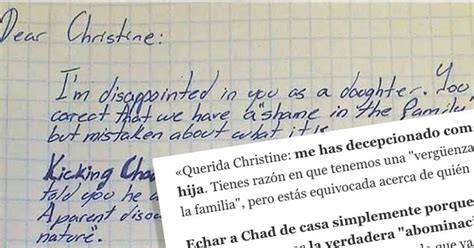 Dear Christine:
I'm disappointed in you as a daughter. You
corect that we have a "shame in the family
but mistaken about what it is.
Kicking Cha
told you he a
Aparent disou
nature".
«Querida Christine: me has decepcionado com
hija. Tienes razón en que tenemos una "vergüenza
la familia", pero estás equivocada acerca de quién
Echar a Chad de casa simplemente porque
la verdadera "abominac
que ya